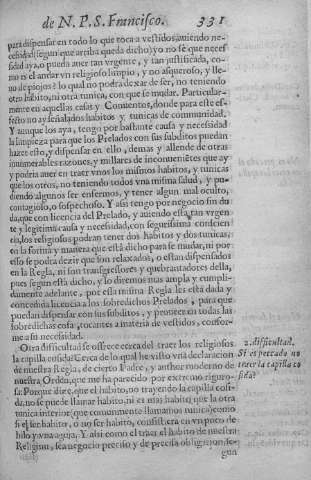 de N. P. S. Francisco. 331
para dispensar en todo lo que toca a vestidos, auiendo ne-
cesidad (segun que arriba queda dicho) yo no sè que neces
sidad aya, o pueda auer tan vrgente, y tan justificada, co-
mo es el andar vn religioso limpio, y no asqueroso, y lle-
no de piojos? lo qual no podra dexar de ser, no teniendo
otro habito, ni otra tunica, con que se mudar. Particular-
mente en aquellas casas y Conuentos, donde para este ef-
fecto no ay señalados habitos y tunicas de comunidad.
Y aunque los aya, tengo por bastante causa y necessidad
la limpieza para que los Prelados con sus subditos puedan
hazer esto, y dispensar en ello, demas y allende de otras
innumerables razones, y millares de inconuenientes que ay
y podria auer en traer vnos los mismos habitos, y tunicas
que los otros, no teniendo todos vna misma salud, y pu-
diendo algunos ser enfermos, y tener algun mal oculto,
contagioso, o sospechoso. Y assi tengo por negocio sin du
da, que con licencia del Prelado, y auiendo esta tan vrgen
te y legitima causa y necessidad, con segurissima conscien
cia, los religiosos podran tener dos habitos y dos tunicas,
en la forma y manera que està dicho para se mudar, ni por
esso se podra dezir que son relaxados, o estan dispensados
en la Regla, ni son transgressores y quebrantadores della,
pues segun està dicho, y lo diremos mas ampla y cumpli-
damente adelante, por esta misma Regla les està dada y
concedida licencia a los sobredichos Prelados, para que
puedan dispensar con sus subditos, y proueer en todas las
sobredichas cosas, tocantes a materia de vestidos, confor-
me a su necessidad.
Otra difficultad se offrece cerca del traer los religiosos
la capilla cosida: Cerca de lo qual he visto vna declaracion
de nuestra Regla, de cierto Padre, y author moderno de
nuestra Orden, que me ha parecido por extremo riguro-
sa: Porque dize, que el habito, no trayendo la capilla cosi-
da, no se puede llamar habito, ni es mas habito que la otra
tunica interior (que comunmente llamamos tunica) como
si el ser habito, o no ser habito, consistiera en vn poco de
hilo y vna aguja. Y assi como el traer el habito de nuestra
Religion, sea negocio preciso y de precisa obligacion, se-
gun
2. difficultad.
Si es peccado no
traer la capilla co
sida?